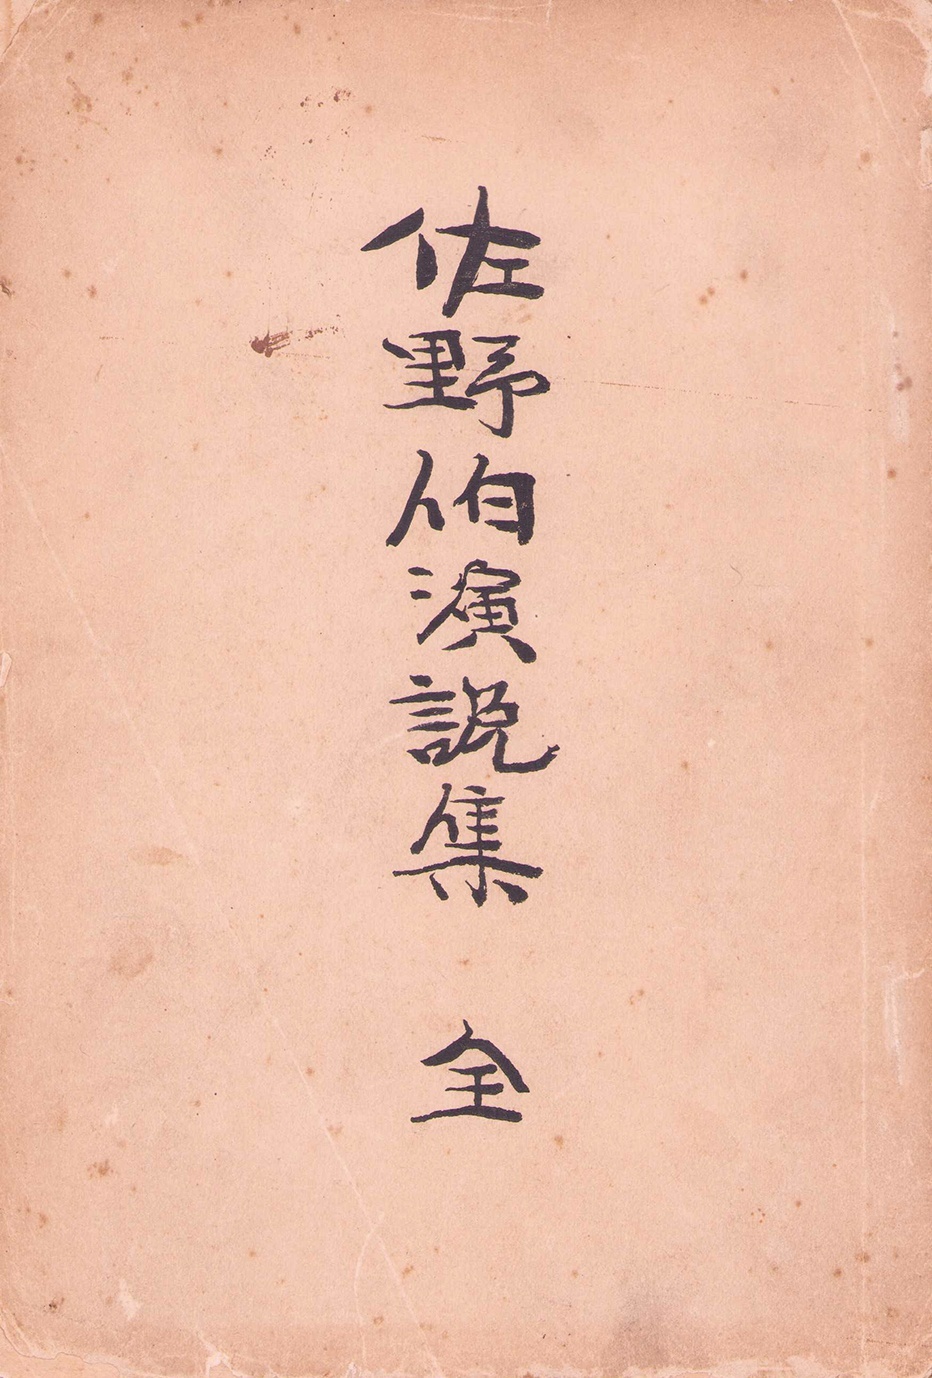 佐野伯演説集 全